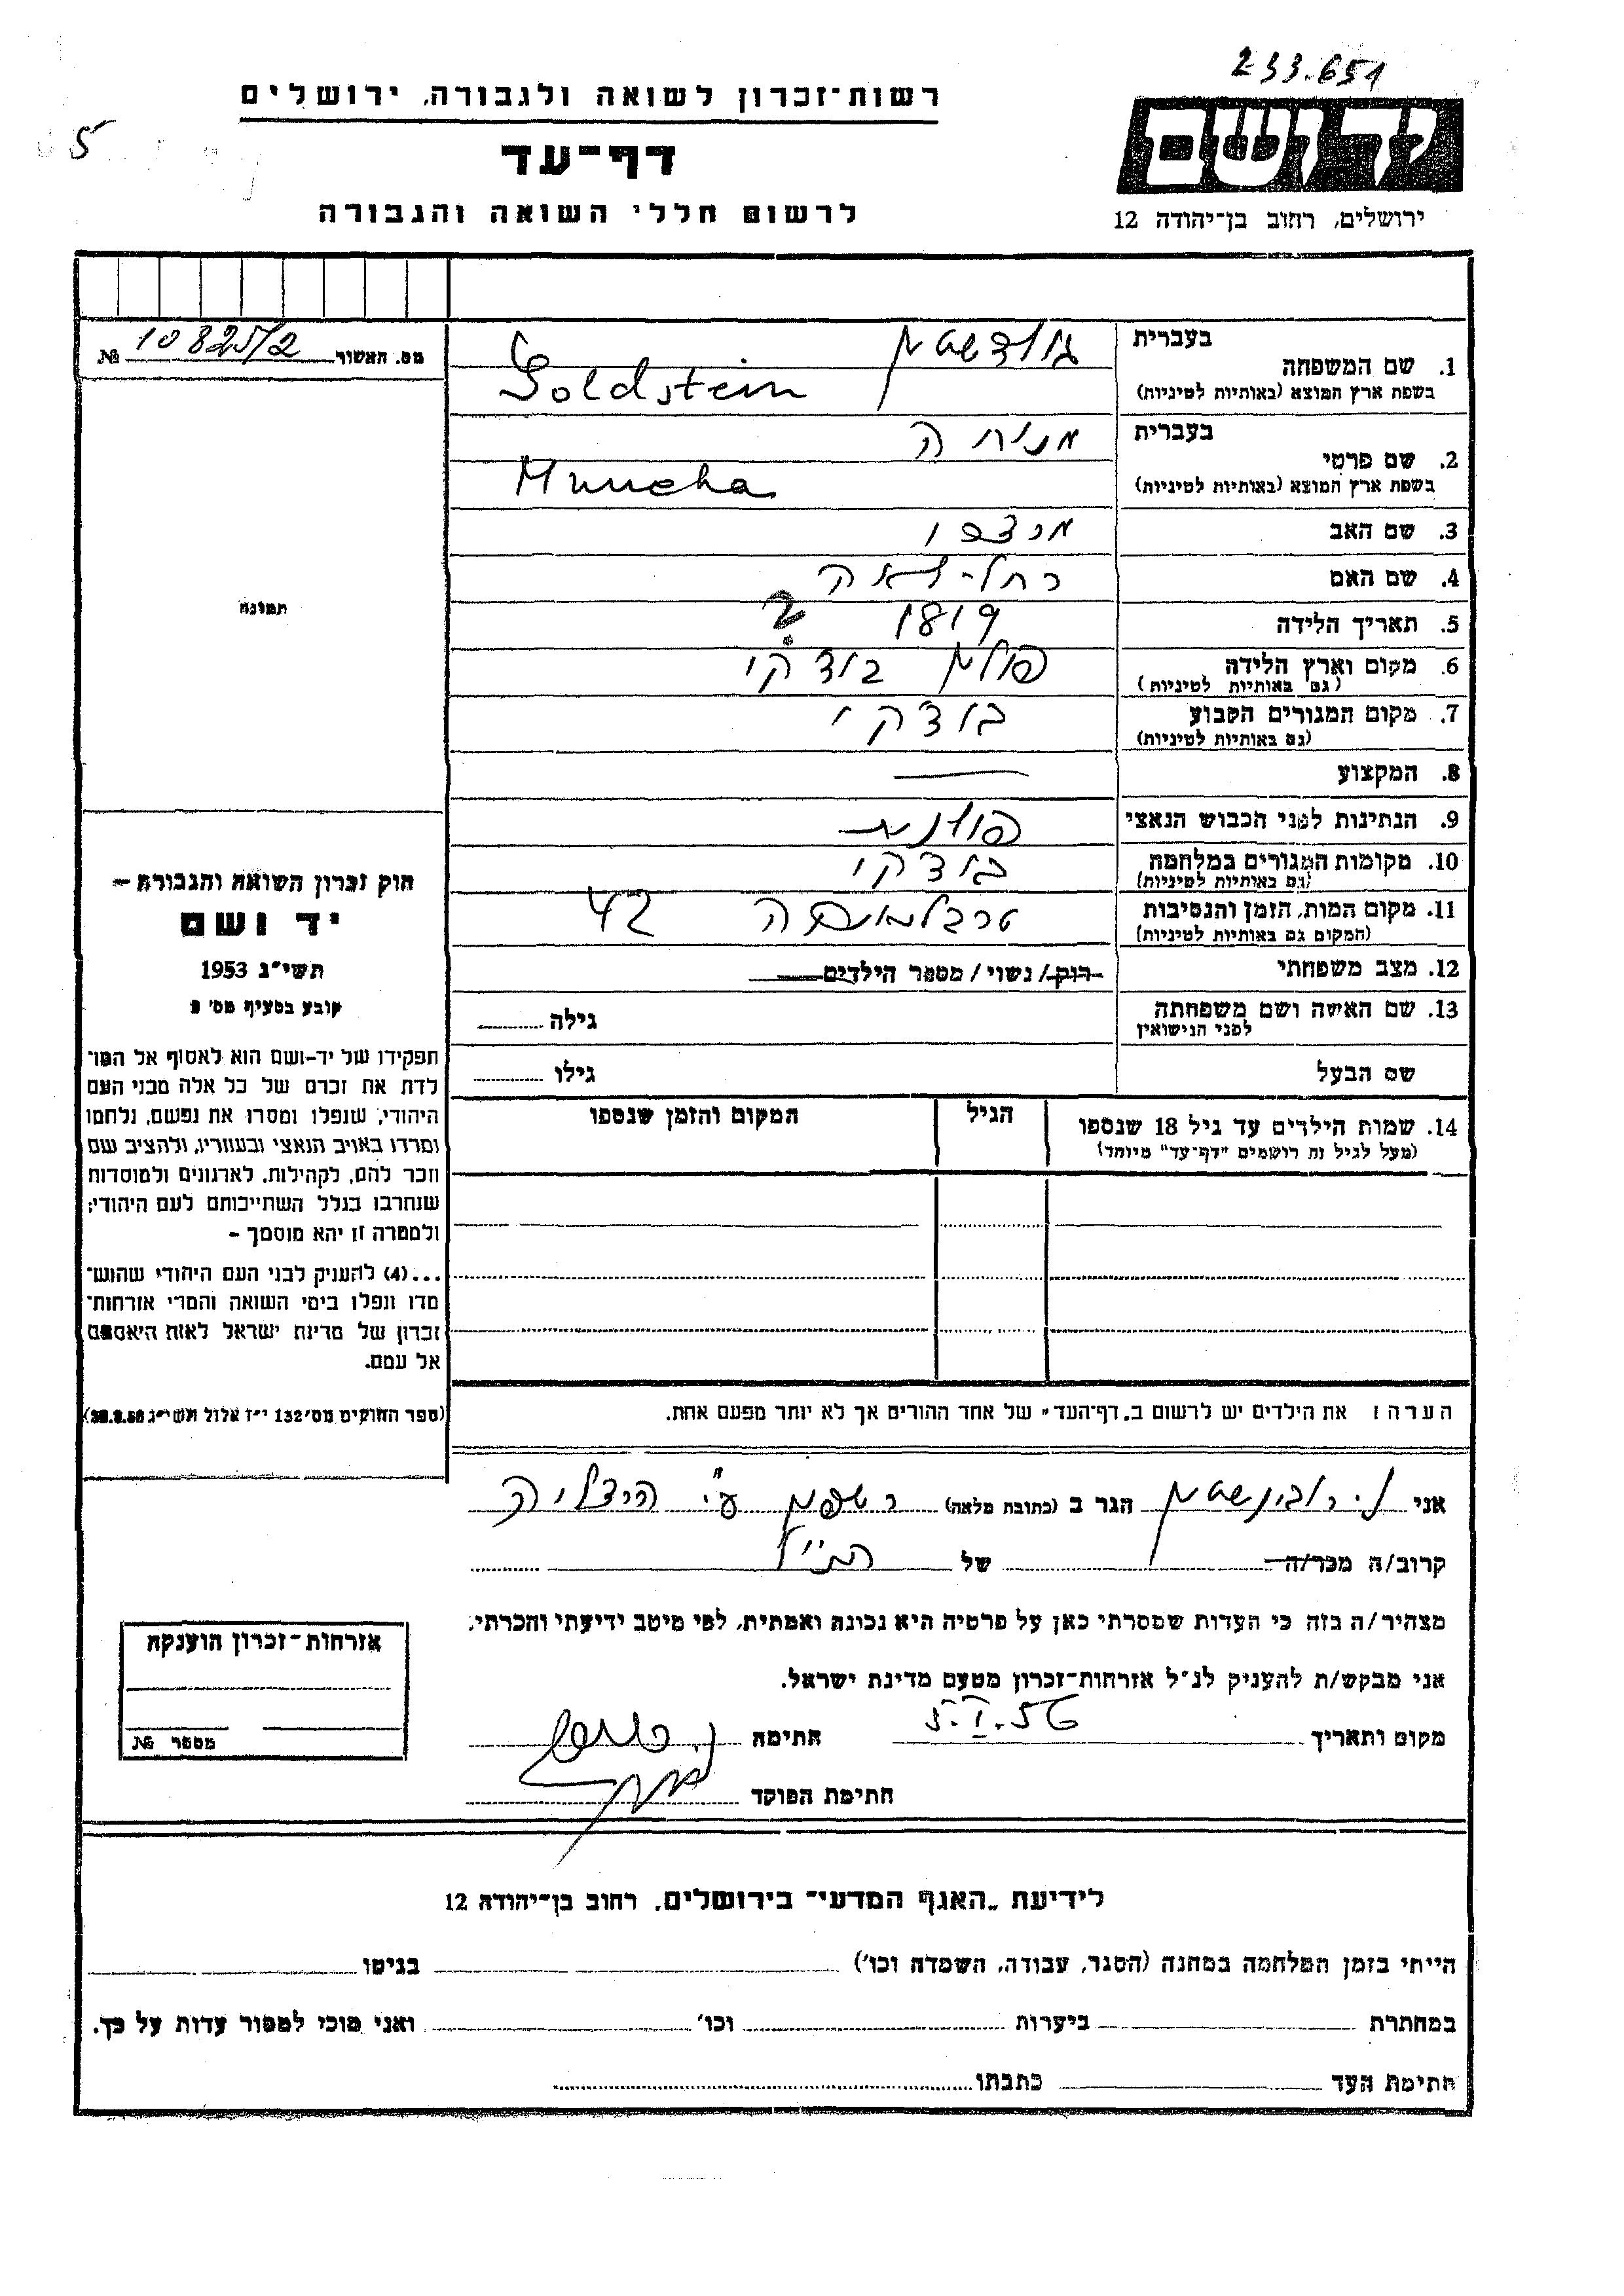 233.651
רשות-זכרון לשואה ולגבורה, ירושלים
5
דף-עד
לרשום חללי השואה והגבורה
יד ושם
ירושלים, רחוב בן-יהודה 12
מס. האשור 10825/2 №
בעברית
1. שם המשפחה
בשפת ארץ המוצא (באותיות לטיניות) Goldstein
בעברית
2. שם פרטי מנוחה
בשפת ארץ המוצא (באותיות לטיניות)
3. שם האב
4. שם האם
5. תאריך הלידה 1819 ?
6. מקום וארץ הלידה פולין בודקי
(גם באותיות לטיניות)
7. מקום המגורים הקבוע בודקי
(גם באותיות לטיניות)
8. המקצוע —
9. הנתינות לפני הכבוש הנאצי פולנית
10. מקומות המגורים במלחמה בודקי
(גם באותיות לטיניות)
11. מקום המות, הזמן והנסיבות טרבלינקה 42
(המקום גם באותיות לטיניות)
12. מצב משפחתי רווק/נשוי/מספר הילדים
13. שם האשה ושם משפחתה גילה
לפני הנישואין
שם הבעל גילו
14. שמות הילדים עד גיל 18 שנספו הגיל המקום והזמן שנספו
(מעל לגיל זה רושמים "דף-עד" מיוחד)
תמונה
חוק זכרון השואה והגבורה —
יד ושם
תשי"ג 1953
קובע בסעיף מס' 2
תפקידו של יד-ושם הוא לאסוף אל המו־
לדת את זכרם של כל אלה מבני העם
היהודי, שנפלו ומסרו את נפשם, נלחמו
ומרדו באויב הנאצי ובעוזריו, ולהציב שם
וזכר להם, לקהילות, לארגונים ולמוסדות
שנחרבו בגלל השתייכותם לעם היהודי;
ולמטרה זו יהא מוסמך –
...(4) להעניק לבני העם היהודי שהוש־
מדו ונפלו בימי השואה והמרי אזרחות־
זכרון של מדינת ישראל לאות היאספם
אל עמם.
(ספר החוקים מס' 132 י"ז אלול תשי"ג
הערה: את הילדים יש לרשום ב"דף-העד" של אחד ההורים אך לא יותר מפעם אחת.
אני ל. רובינשטיין הגר ב (כתובת מלאה) רשפון ע"י הרצליה
קרוב/ה מכר/ה של הנ"ל
מצהיר/ה בזה כי העדות שמסרתי כאן על פרטיה היא נכונה ואמתית, לפי מיטב ידיעתי והכרתי.
אני מבקש/ת להעניק לנ"ל אזרחות-זכרון מטעם מדינת ישראל.
מקום ותאריך 5.I.56 חתימה
חתימת הפוקד
אזרחות-זכרון הוענקה
מספר №
לידיעת "האגף המדעי" בירושלים, רחוב בן-יהודה 12
הייתי בזמן המלחמה במחנה (הסגר, עבודה, השמדה וכו') בגיטו
במחתרת ביערות וכו' ואני מוכן למסור עדות על כך.
חתימת העד כתבתו